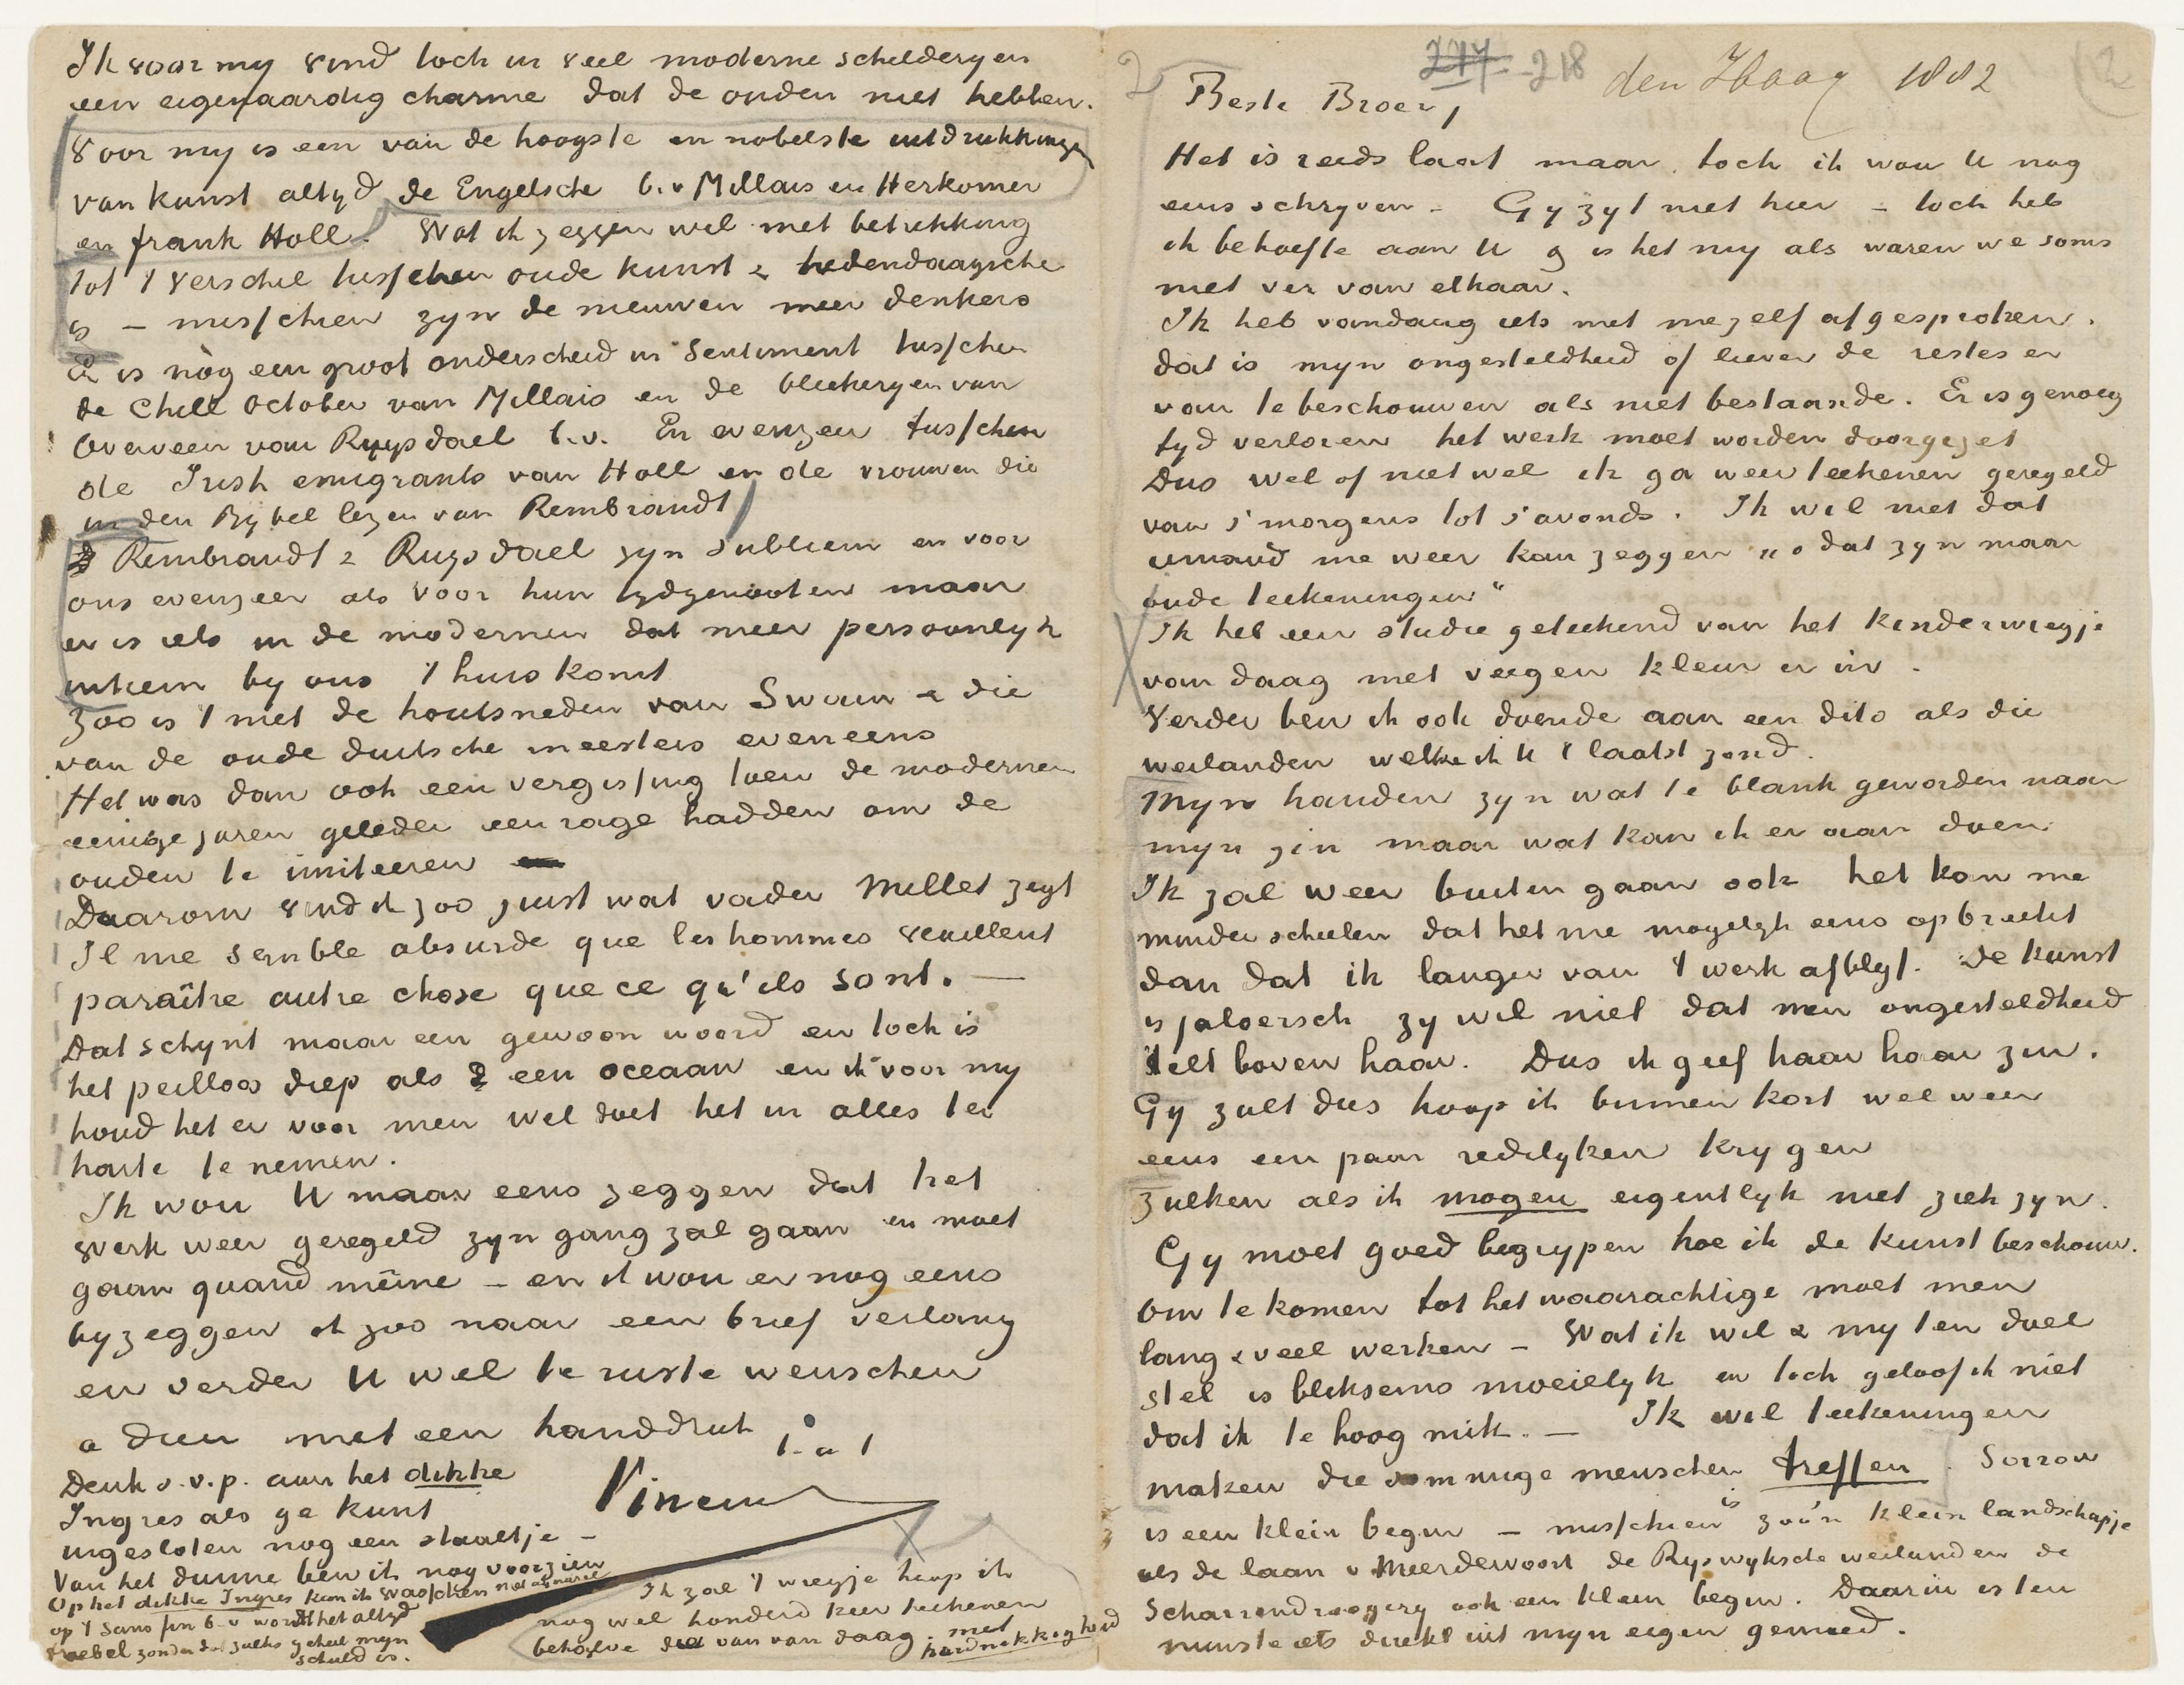 277 218 den Haag 1882
2
Beste Broer,
Het is reeds laat maar toch ik wou U nog
eens schryven – Gy zyt niet hier – toch heb
ik behoefte aan U & is het my als waren we soms
niet ver van elkaar.
Ik heb vandaag iets met mezelf afgesproken.
dat is myn ongesteldheid of liever de restes er
van te beschouwen als niet bestaande. Er is genoeg
tyd verloren het werk moet worden doorgezet
Dus wel of niet wel ik ga weer teekenen geregeld
van s'morgens tot s'avonds. Ik wil niet dat
iemand me weer kan zeggen „o dat zyn maar
oude teekeningen“
Ik heb een studie geteekend van het kinderwiegje
van daag met veegen kleur er in.
Verder ben ik ook doende aan een dito als die
weilanden welke ik U 't laatst zond.
Myn handen zyn wat te blank geworden naar
myn zin maar wat kan ik er aan doen
Ik zal weer buiten gaan ook het kan me
minder scheelen dat het me mogelyk eens opbreekt
dan dat ik langer van 't werk afblyf. De kunst
is jaloersch zy wil niet dat men ongesteldheid
stelt boven haar. Dus ik geef haar haar zin.
Gy zult dus hoop ik binnen kort wel weer
eens een paar redelyken krygen
Zulken als ik mogen eigentlyk niet ziek zyn.
Gy moet goed begrypen hoe ik de kunst beschouw.
Om te komen tot het waarachtige moet men
lang & veel werken – Wat ik wil & my ten doel
stel is bliksems moeielyk en toch geloof ik niet
dat ik te hoog mik. — Ik wil teekeningen
maken die sommige menschen treffen. Sorrow
is een klein begin – misschien is zoo'n klein landschapje
als de laan v Meerdevoort de Ryswyksche weilanden de
Scharrendroogery ook een klein begin. Daarin is ten
minste iets direkt uit myn eigen gemoed.
Ik voor my vind toch in veel moderne schilderyen
een eigenaardig charme dat de ouden niet hebben.
Voor my is een van de hoogste en nobelste uitdrukkingen
van kunst altyd de Engelsche b.v Millais en Herkomer
en frank Holl. Wat ik zeggen wil met betrekking
tot 't verschil tusschen oude kunst & hedendaagsche
is – misschien zyn de nieuwen meer denkers
Er is nòg een groot onderscheid in sentiment tusschen
de Chill October van Millais en de bleekeryen van
Overveen van Ruysdael b.v. En evenzeer tusschen
de Irish emigrants van Holl en de vrouwen die
in den Bybel lezen van Rembrandt
Rembrandt & Ruysdael zyn subliem en voor
ons evenzeer als voor hun tydgenooten maar
er is iets in de modernen dat meer persoonlyk
intiem by ons 't huis komt
Zoo is 't met de houtsneden van Swain & die
van de oude duitsche meesters eveneens
Het was dan ook een vergissing toen de modernen
eenige jaren geleden een rage hadden om de
ouden te imiteeren
Daarom vind ik zoo juist wat vader Millet zegt
Il me semble absurde que les hommes veuillent
paraître autre chose que ce qu'ils sont. —
Dat schynt maar een gewoon woord en toch is
het peilloos diep als een oceaan en ik voor my
houd het er voor men wel doet het in alles ter
harte te nemen.
Ik wou U maar eens zeggen dat het
werk weer geregeld zyn gang zal gaan en moet
gaan quand même – en ik wou er nog eens
byzeggen ik zoo naar een brief verlang
en verder U wel te ruste wenschen
adieu met een handdruk
t. à t
Vincent
Denk s.v.p. aan het dikke
Ingres als ge kunt
ingesloten nog een staaltje –
Van het dunne ben ik nog voorzien
Op het dikke Ingres kan ik wasschen met aquarel
op 't sans fin b.v wordt het altyd
troebel zonder dat zulks geheel myn
schuld is.
Ik zal 't wiegje hoop ik
nog wel honderd keer teekenen
behalve die van van daag. met
hardnekkigheid